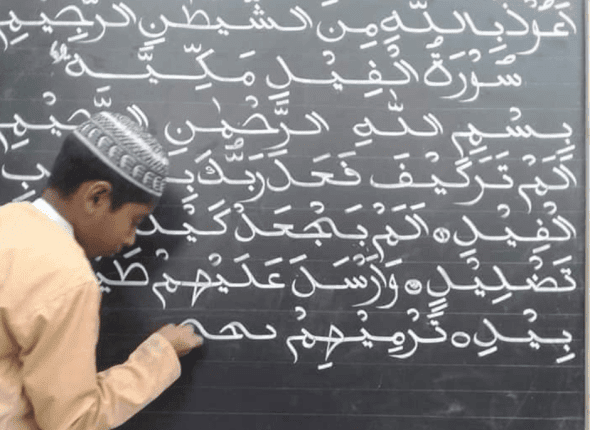 اَعُوْذُ بِاللّٰهِ مِنَ الشَّيْطٰنِ الرَّجِيْمِ
سُوْرَةُ الْفِيْلِ مَكِّيَّة
بِسْمِ اللّٰهِ الرَّحْمٰنِ الرَّحِيْمِ
اَلَمْ تَرَ كَيْفَ فَعَلَ رَبُّكَ
الْفِيْلِ ۝ اَلَمْ يَجْعَلْ كَيْدَ
تَضْلِيْلٍ ۝ وَّاَرْسَلَ عَلَيْهِمْ
بِيْلَ ۝ تَرْمِيْهِمْ